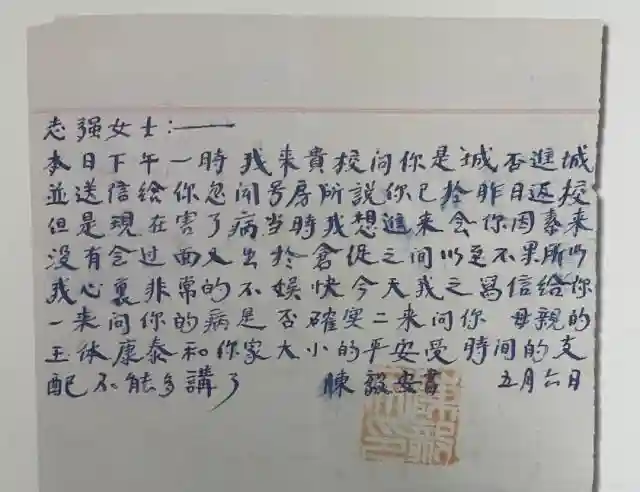 志强女士：——
本日下午一時我来貴校问你是城否進城
並送信给你忽闻号房所説你已於昨日返校
但是現在害了病当時我想進来会你因素来
没有会过面又出於倉促之间以至不果所以
我心裏非常的不娱快今天我之寫信给你
一来问你的病是否確实二来问你 母親的
玉体康泰和你家大小的平安受時间的支
配不能多講了 陳毅安書 五月六日